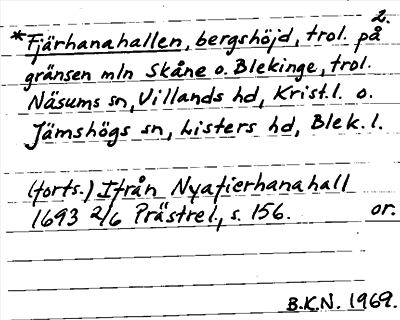 2.
*Fjärhanahallen, bergshöjd, trol. på
gränsen mln Skåne o. Blekinge, trol.
Näsums sn, Villands hd, Krist.l. o.
Jämshögs sn, Listers hd, Blek.l.
(forts.) Ifrån Nyafierhanahall
1693 2/6 Prästrel., s. 156. or.
B.K.N. 1969.